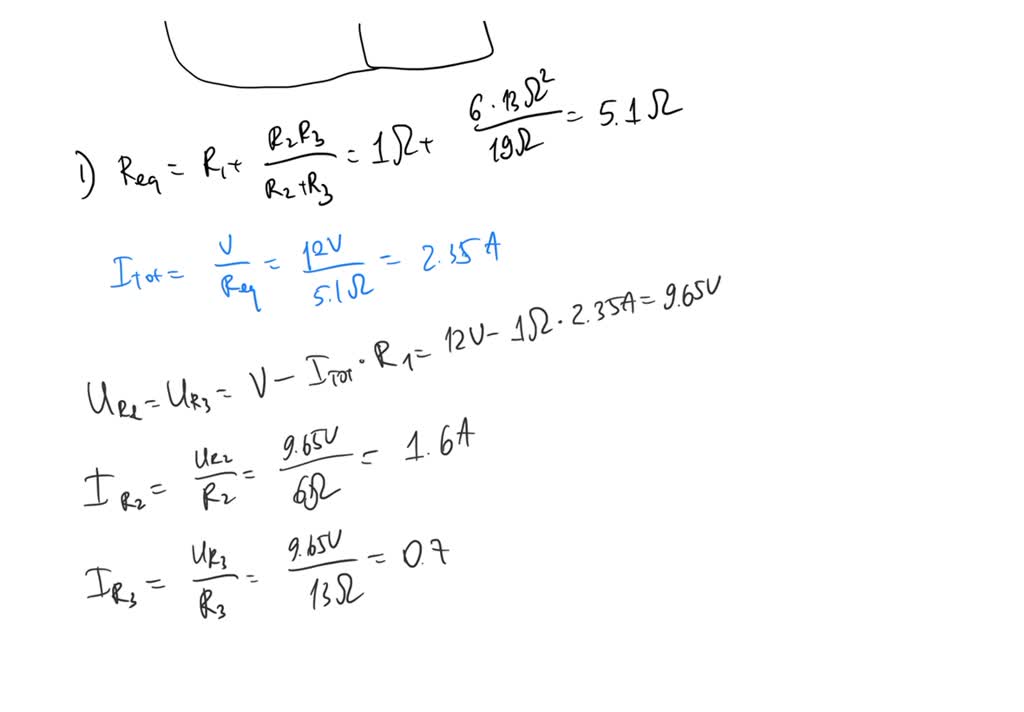 1) Req = R1 + R2R3 / R2+R3 = 1Ω + 6·13Ω² / 19Ω = 5.1Ω
Itot = V / Req = 12V / 5.1Ω = 2.35A
UR2 = UR3 = V − ITOT · R1 = 12V − 1Ω · 2.35A = 9.65V
IR2 = UR2 / R2 = 9.65V / 6Ω = 1.6A
IR3 = UR3 / R3 = 9.65V / 13Ω = 0.7